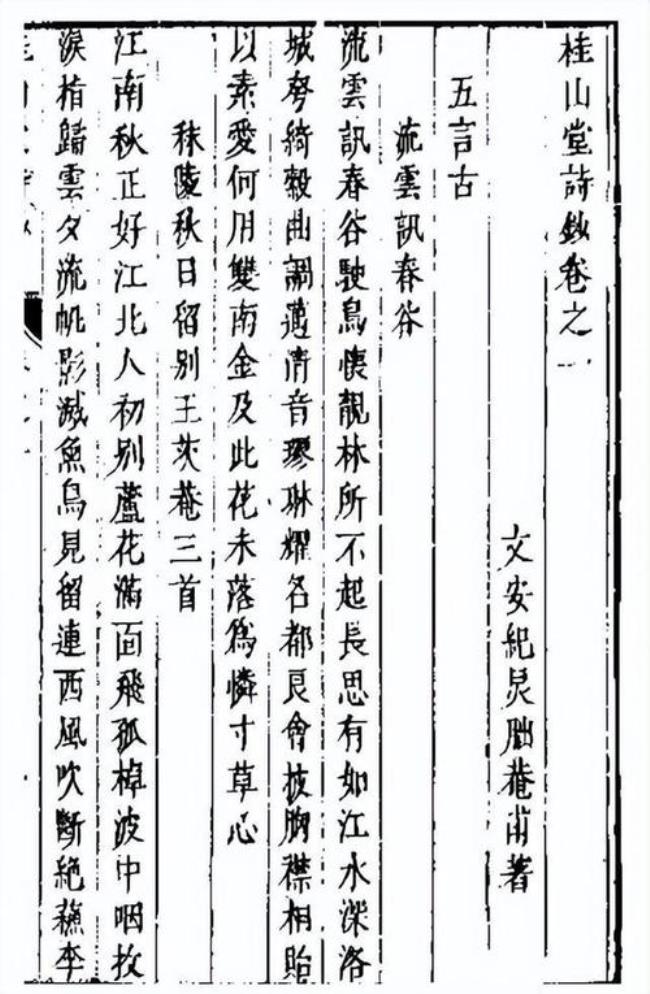 桂山堂詩鈔卷之一
文安紀炅朏菴甫著
五言古
流雲訊春谷
流雲訊春谷駛鳥懷靚林所不起長思有如江水深洛
城夸綺縠曲調邁清音璆琳耀名都良會披胸襟相貽
以素愛何用雙南金及此花未落爲憐寸草心
秣陵秋日留别王茨菴三首
江南秋正好江北人初别蘆花滿面飛孤棹波中咽故
淚楷歸雲夕流帆影滅魚鳥見留連西風吹斷絶蘓李